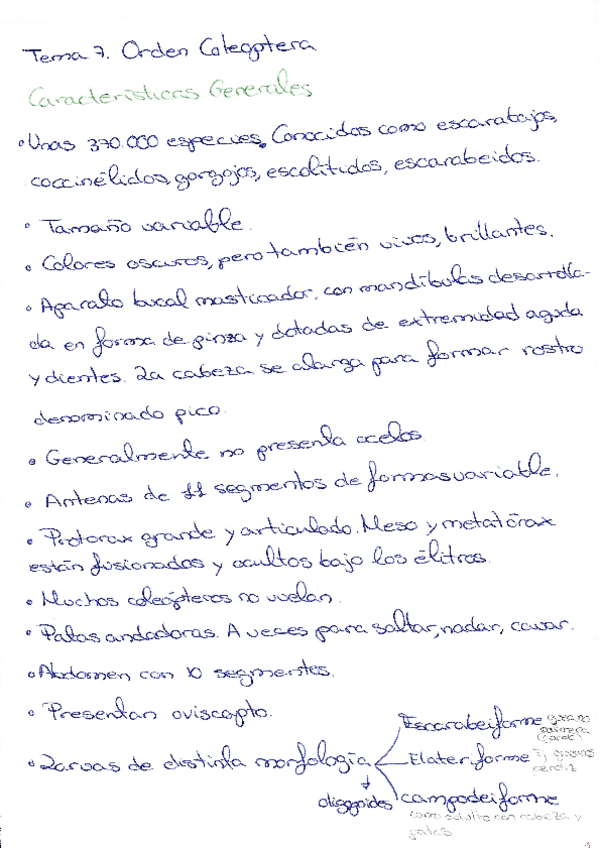 Tema 7. Orden Coleoptera
Características Generales
• Unas 370.000 especies. Conocidos como escarabajos,
coccinélidos, gorgojos, escolítidos, escarabeidos.
• Tamaño variable.
• Colores oscuros, pero también vivos, brillantes.
• Aparato bucal masticador, con mandíbulas desarrolla-
da en forma de pinza y dotadas de extremidad aguda
y dientes. La cabeza se alarga para formar rostro
denominado pico.
• Generalmente no presenta ocelos
• Antenas de 11 segmentos de formas variable.
• Protorax grande y articulado. Meso y metatórax
están fusionados y ocultos bajo los élitros.
• Muchos coleópteros no vuelan.
• Patas andadoras. A veces para saltar, nadar, cavar.
• Abdomen con 10 segmentos.
• Presentan oviscapto.
Escarabeiforme gusano
• Larvas de distinta morfología Elateriforme
oligopoides campodeiforme
como adulto con cabeza y
patas